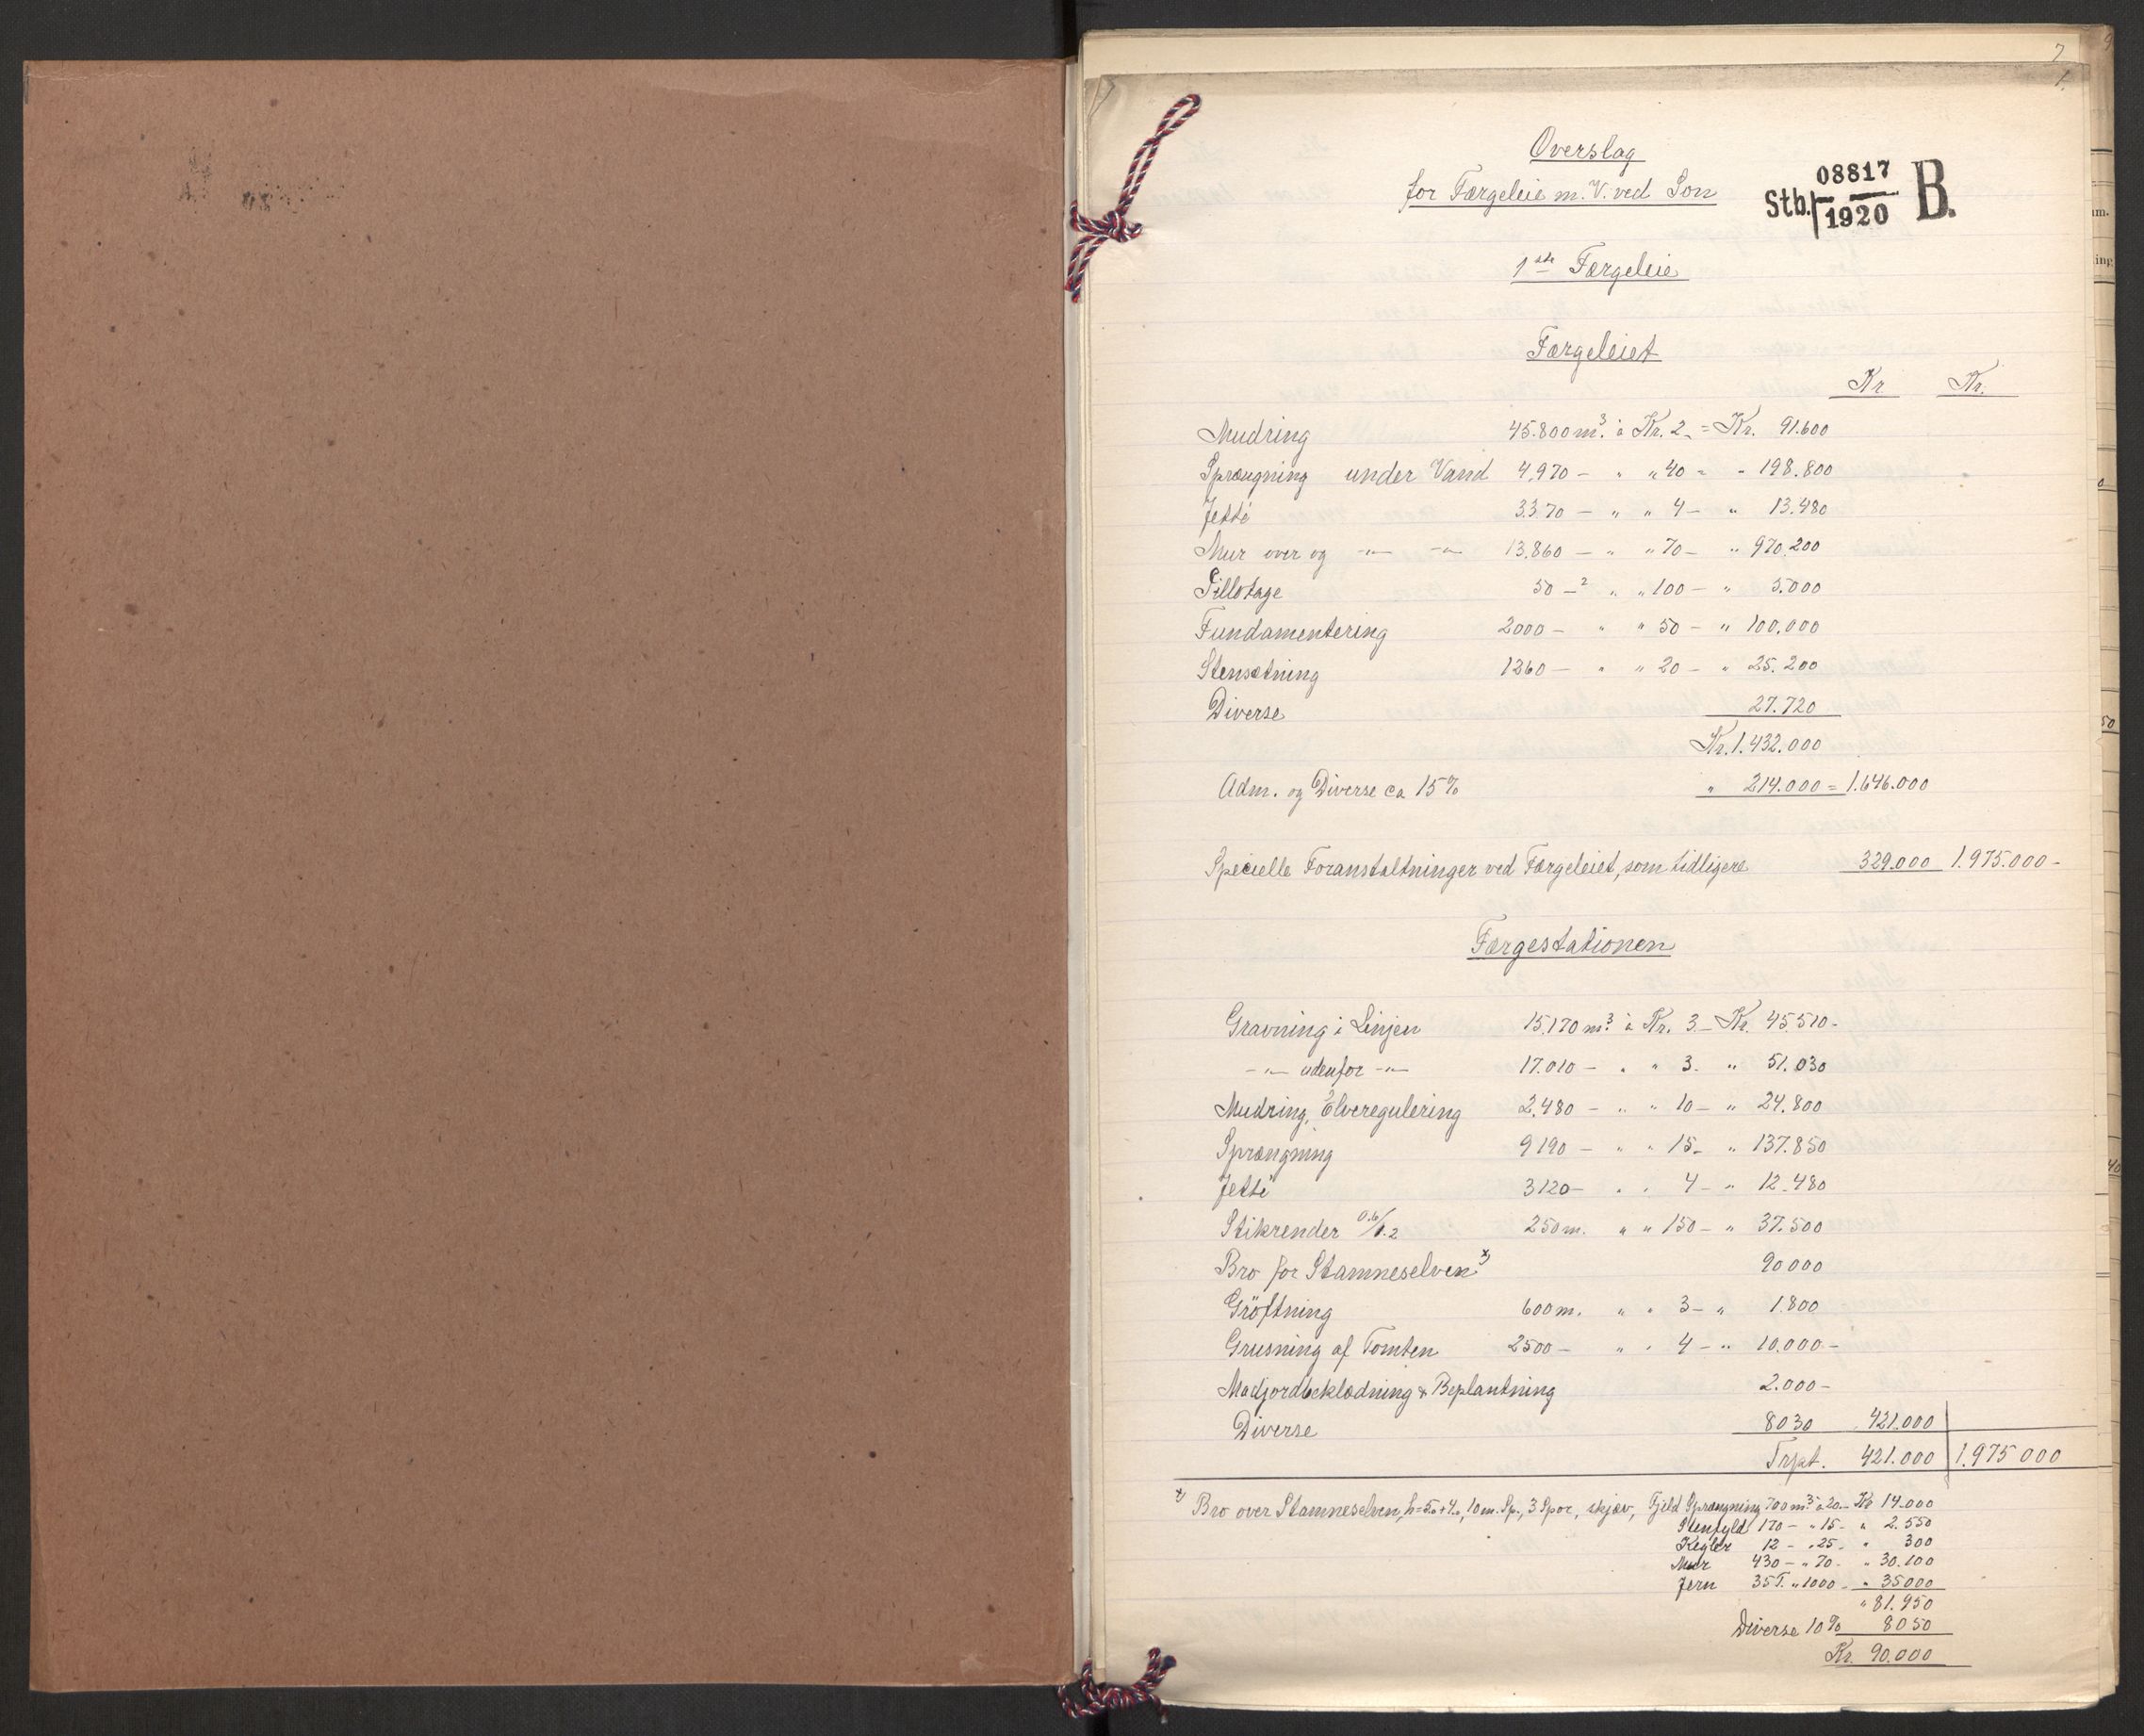 7
1.
Overslag
for Færgeleie m. V. ved Son
Stb. 08817/1920 B.
1ste Færgeleie
Færgeleiet
Kr. Kr.
Mudring 45.800 m³. à Kr. 2. = Kr. 91.600
Sprængning under Vand 4.970 - " " 40 - " 198.800
Jetté 3370 - " " 4 - " 13.480
Mur over og -"- -"- 13.860 - " " 70 - " 970.200
Pillotage 50 -² " " 100 - " 5.000
Fundamentering 2000 - " " 50 - " 100.000
Stensætning 1260 - " " 20 - " 25.200
Diverse 27.720
Kr. 1.432.000
Adm. og Diverse ca 15% " 214.000 = 1.646.000
Specielle Foranstaltninger ved Færgeleiet, som tidligere 329.000 1.975.000 -
Færgestationen
Gravning i Linjen 15.170 m³. à Kr. 3 - Kr. 45.510 -
-"- udenfor -"- 17.010 - " " 3. " 51.030
Mudring, Elveregulering 2.480 - " " 10 - " 24.800
Sprængning 9190 - " " 15 - " 137.850
Jetté 3120 - " " 4 - " 12.480
Stikrender 0.6/1.2 250 m. " " 150 - " 37.500
Bro for Stamneselven x) 90000
Gröftning 600 m. " " 3 - " 1.800
Grusning af Tomten 2500 - " " 4 - " 10.000 -
Madjordbeklædning & Beplantning 2.000 -
Diverse 8030 421.000
Trpt. 421.000 1.975000
x) Bro over Stamneselven, h=5.0+4.0, 10 m. Sp., 3 Spor, skjæv, Fjeld Sprængning 700 m³ à 20 - Kr 14.000
Stenfyld 170 - " 15 - " 2.550
Kegler 12 - " 25 - " 300
Mur 430 - " 70 - " 30.100
Jern 35 T. " 1000 - " 35000
" 81.950
Diverse 10% 8050
Kr. 90.000